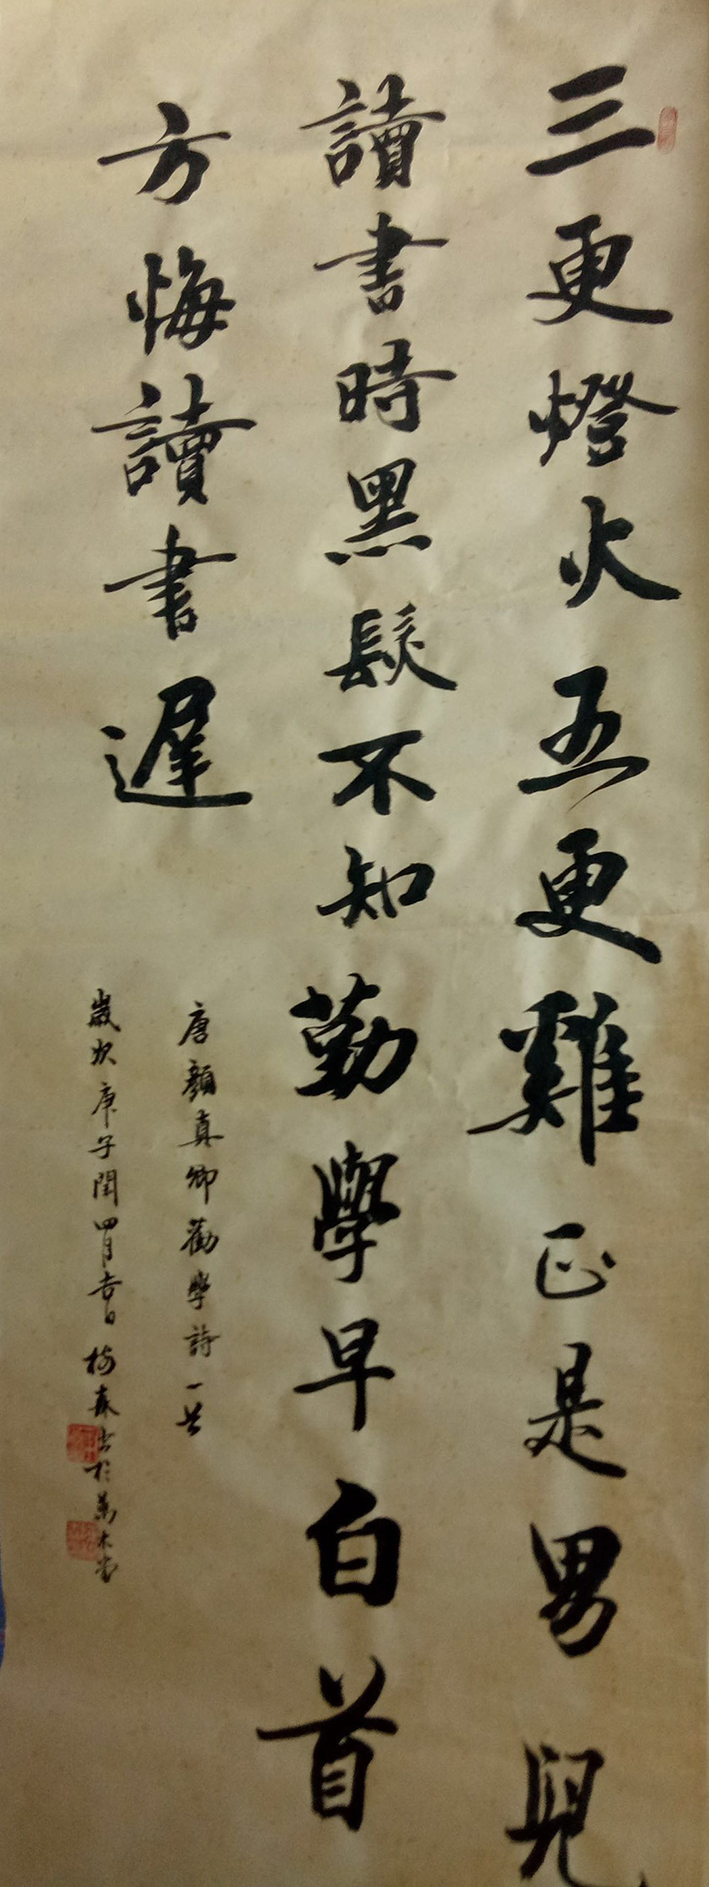 三更燈火五更雞正是男兒
讀書時黑髮不知勤學早白首
方悔讀書遲
唐顏真卿勸學詩一首
歲次庚子閏四月吉日梅森書於萬木堂